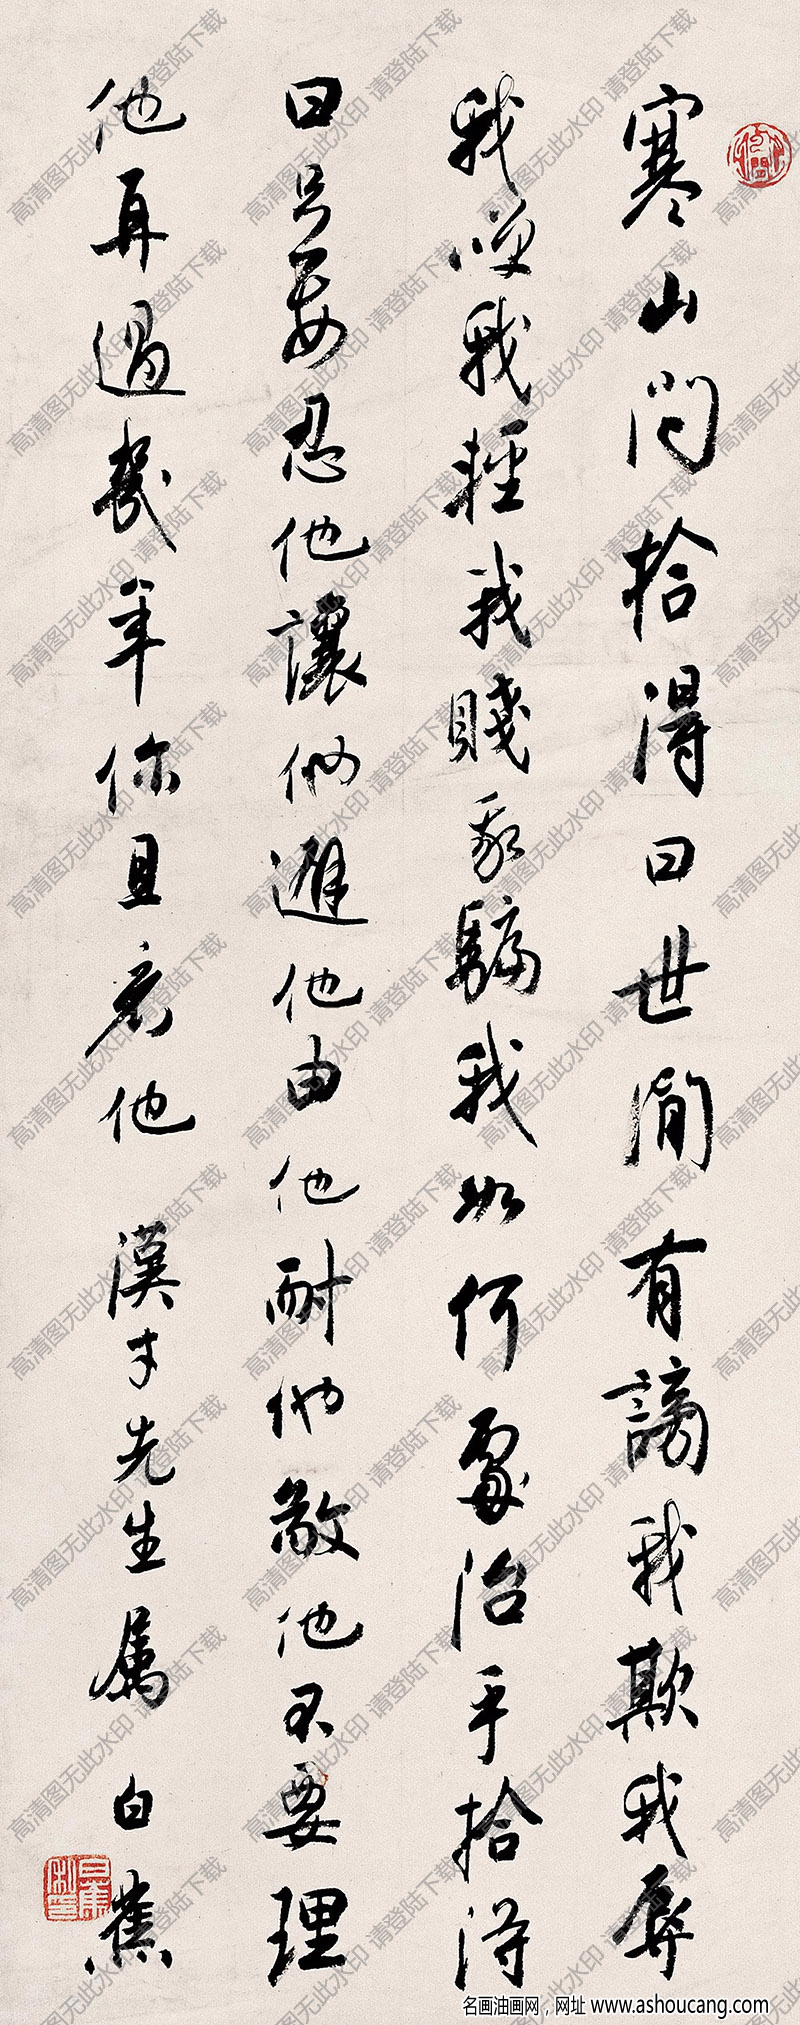 寒山问拾得曰世间有謗我欺我辱
我咲我輕我賤我騙我如何處治乎拾得
曰只要忍他讓他避他由他耐他敬他不要理
他再過幾年你且看他 漢才先生属 白蕉
名画油画网，网址 www.ashoucang.com
高清图无此水印 请登陆下载